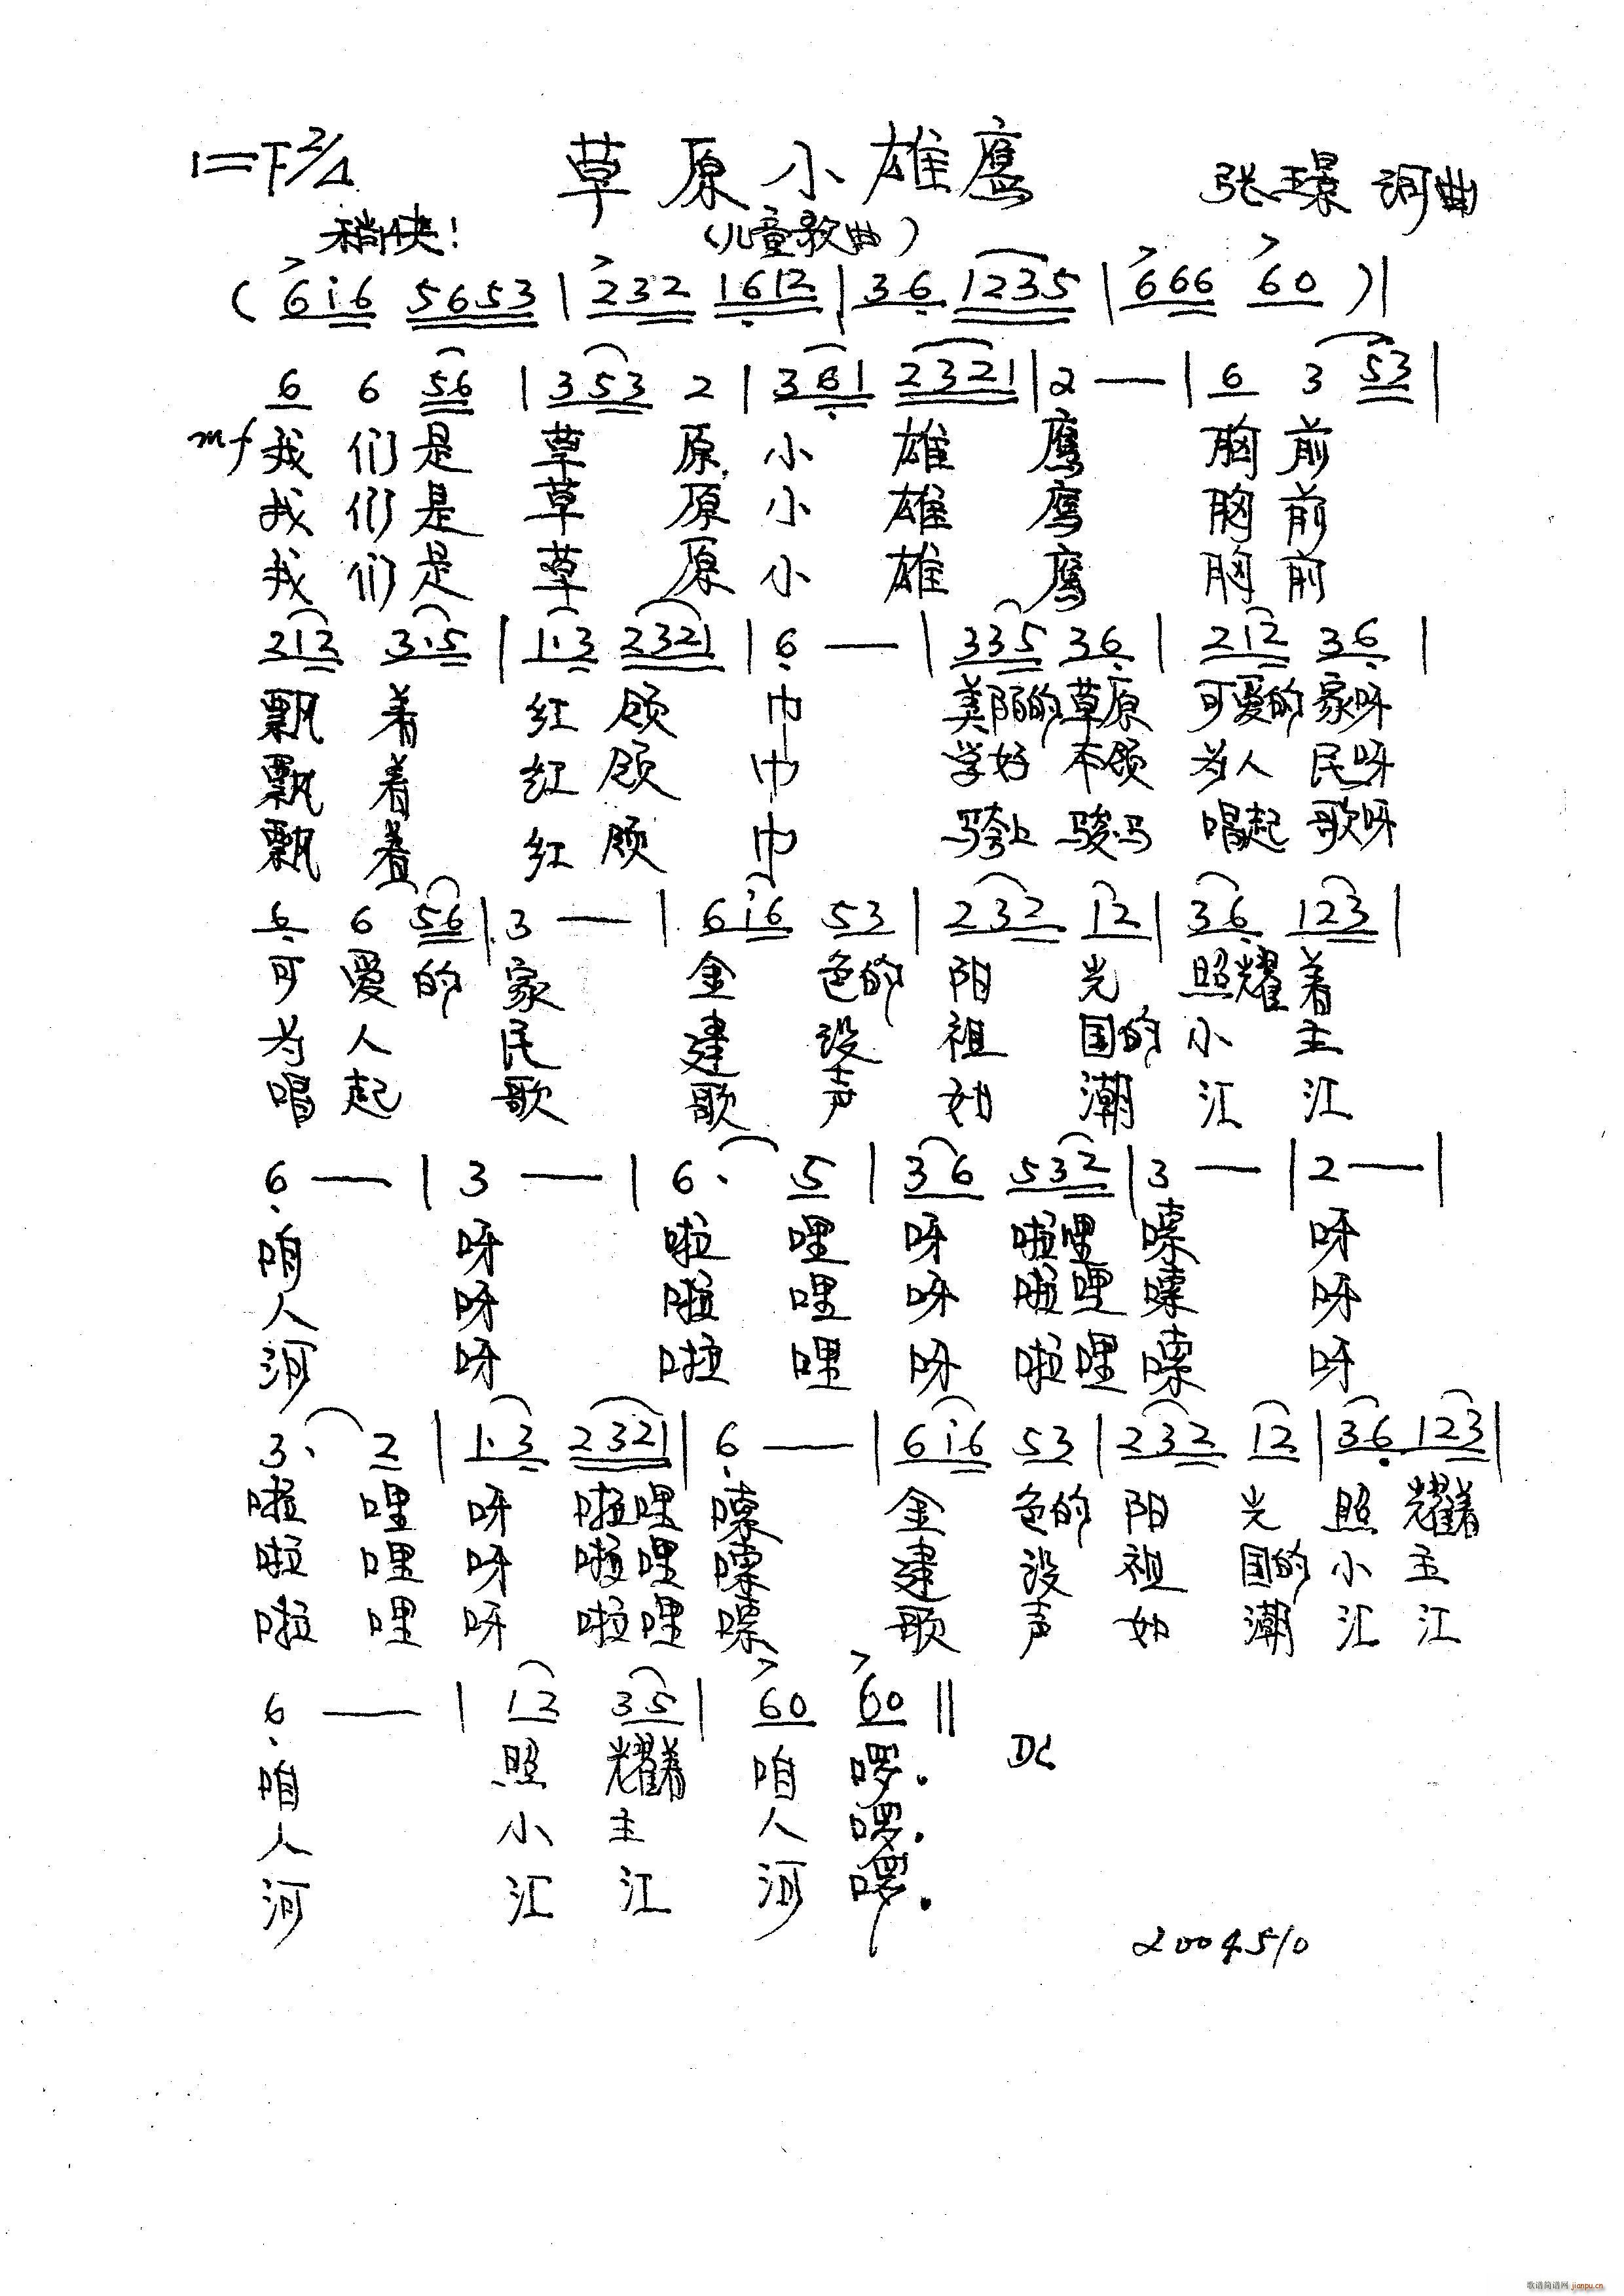 1=F 2/4 草原小雄鹰 张璟 词曲
稍快! (儿童歌曲)
( 6i6 5653 | 232 1612 | 36 1235 | 666 60 ) |
6 6 56 | 353 2 | 361 2321 | 2 — | 6 3 53 |
mf 我们是草原小雄鹰 胸前
我们是草原小雄鹰 胸前
我们是草原小雄鹰 胸前
212 3·5 | 1·3 2321 | 6 — | 335 36 | 212 36 |
飘着红领巾 美丽的草原 可爱的家呀
飘着红领巾 学好本领 为人民呀
飘着红领巾 骑上骏马 唱起歌呀
6 6 56 | 3 — | 6i6 53 | 232 12 | 36 123 |
可爱的家 金色的阳光照耀着
为人民 建设祖国的小主
唱起歌 歌声如潮汇江
6 — | 3 — | 6· 5 | 36 532 | 3 — | 2 — |
咱呀 啦哩呀啦哩嗦呀
人呀 啦哩呀啦哩嗦呀
河呀 啦哩呀啦哩嗦呀
3· 2 | 1·3 2321 | 6 — | 6i6 53 | 232 12 | 36 123 |
啦哩呀啦哩嗦 金色的阳光照耀着
啦哩呀啦哩嗦 建设祖国的小主
啦哩呀啦哩嗦 歌声如潮汇江
6 — | 12 35 | 60 60 ‖
咱 照耀着咱啰. DC
人 小主人啰.
河 汇江河啰.
2004.5/0
歌谱简谱网 jianpu.cn